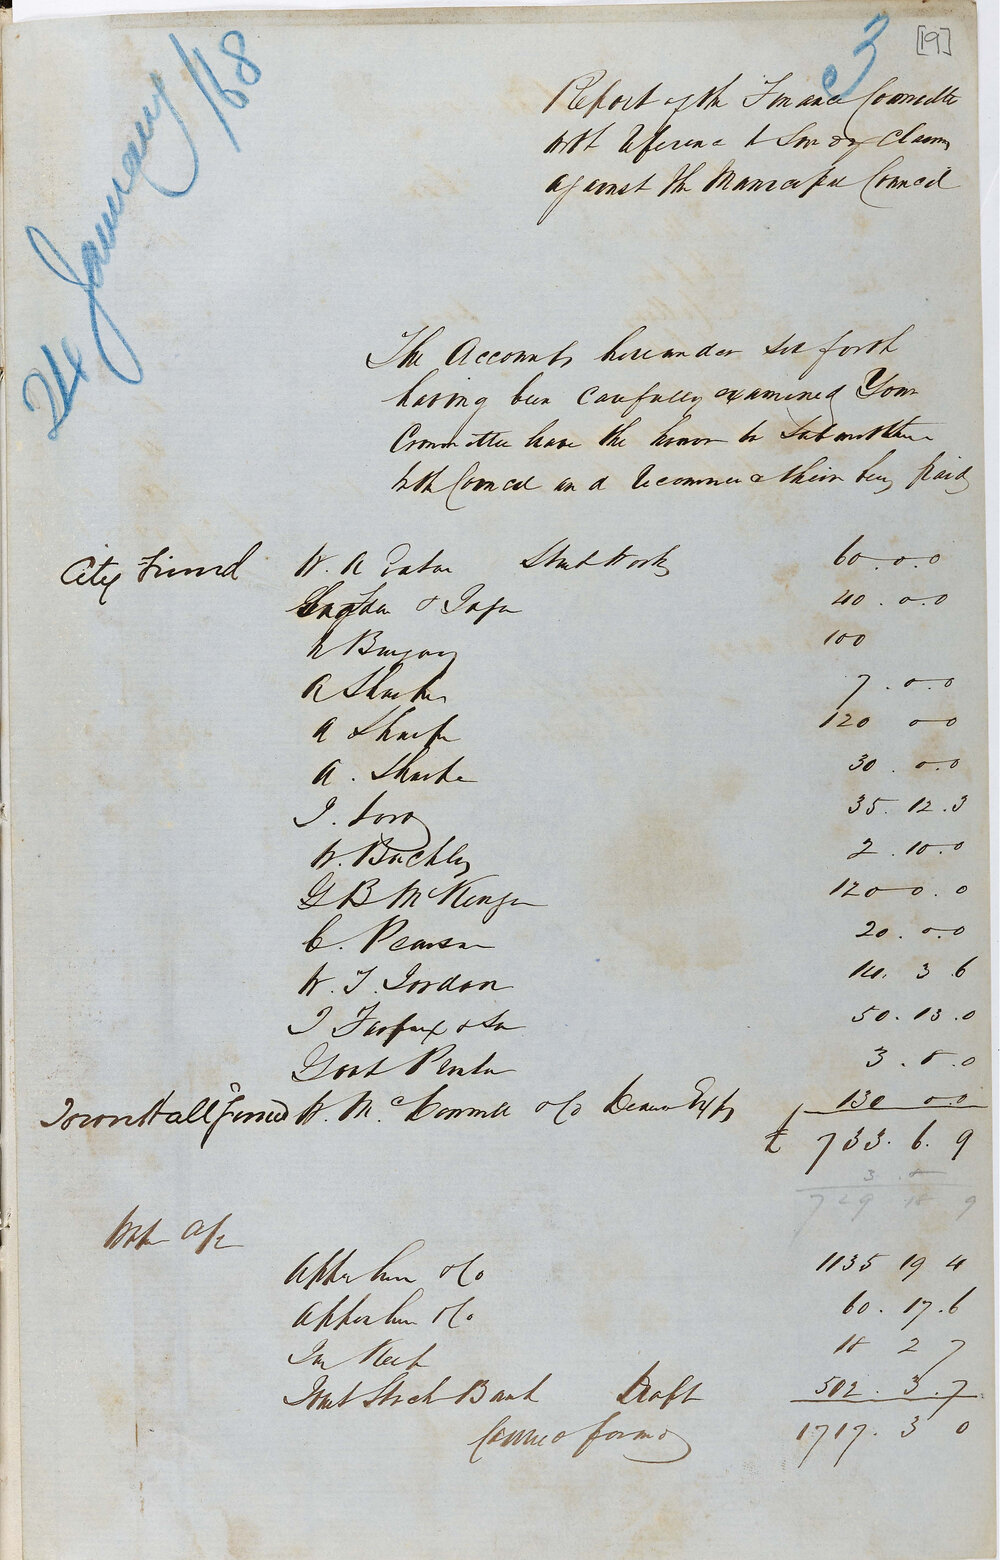 24 January /68
3
[19]
Report of the Finance Committee
with reference to Sundry Claims
against the Municipal Council
The Accounts hereunder set forth
having been carefully examined Your
Committee have the honor to submit them
to the Council and recommend their being paid
City Fund W. A Street Work 60 . 0 . 0
& 40 . 0 . 0
100
A Sharp 7 . 0 . 0
A Sharp 120 0 0
A. Sharp 30 . 0 . 0
35 . 12 . 3
W. Buckley 2 . 10 . 0
G B McKenzie 120 0 . 0
C. Pearson 20 . 0 . 0
W. J. Jordan 14 . 3 6
J Fairfax & Son 50 . 13 . 0
Govt Printer 3 . 8 . 0
Town Hall Fund W. Mc &Co 130 0 0
£ 733 . 6 . 9
3 . 8
729 18 9
Water A/c
&Co 1135 19 4
&Co 60 . 17 . 6
18 2 7
Joint Stock Bank Draft 502 . 3 . 7
Carried forward 1717 . 3 0